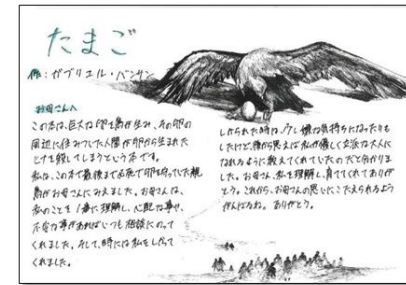 たまご
作：ガブリエル・バンサン
お母さんへ
この本は、巨大な卵を鳥が生み、その卵の
周辺に住みついた人間が卵から生まれた
ヒナを殺してしまうという本です。
私は、この本で最後まで必死で卵を守っていた親
鳥がお母さんにみえました。お母さんは、
私のことを1番に理解し、心配な事や、
不安な事があればいつも相談にのって
くれました。そして、時には私をしかって
くれました。
しかられた時は、少し嫌な気持ちになったりも
したけど、後から思えば私が優しく立派な大人に
なれるように教えてくれていたのだと分かりま
した。お母さん、私を理解し、育ててくれてありが
とう。これから、お母さんの思いにこたえられるよう
がんばるね。ありがとう。